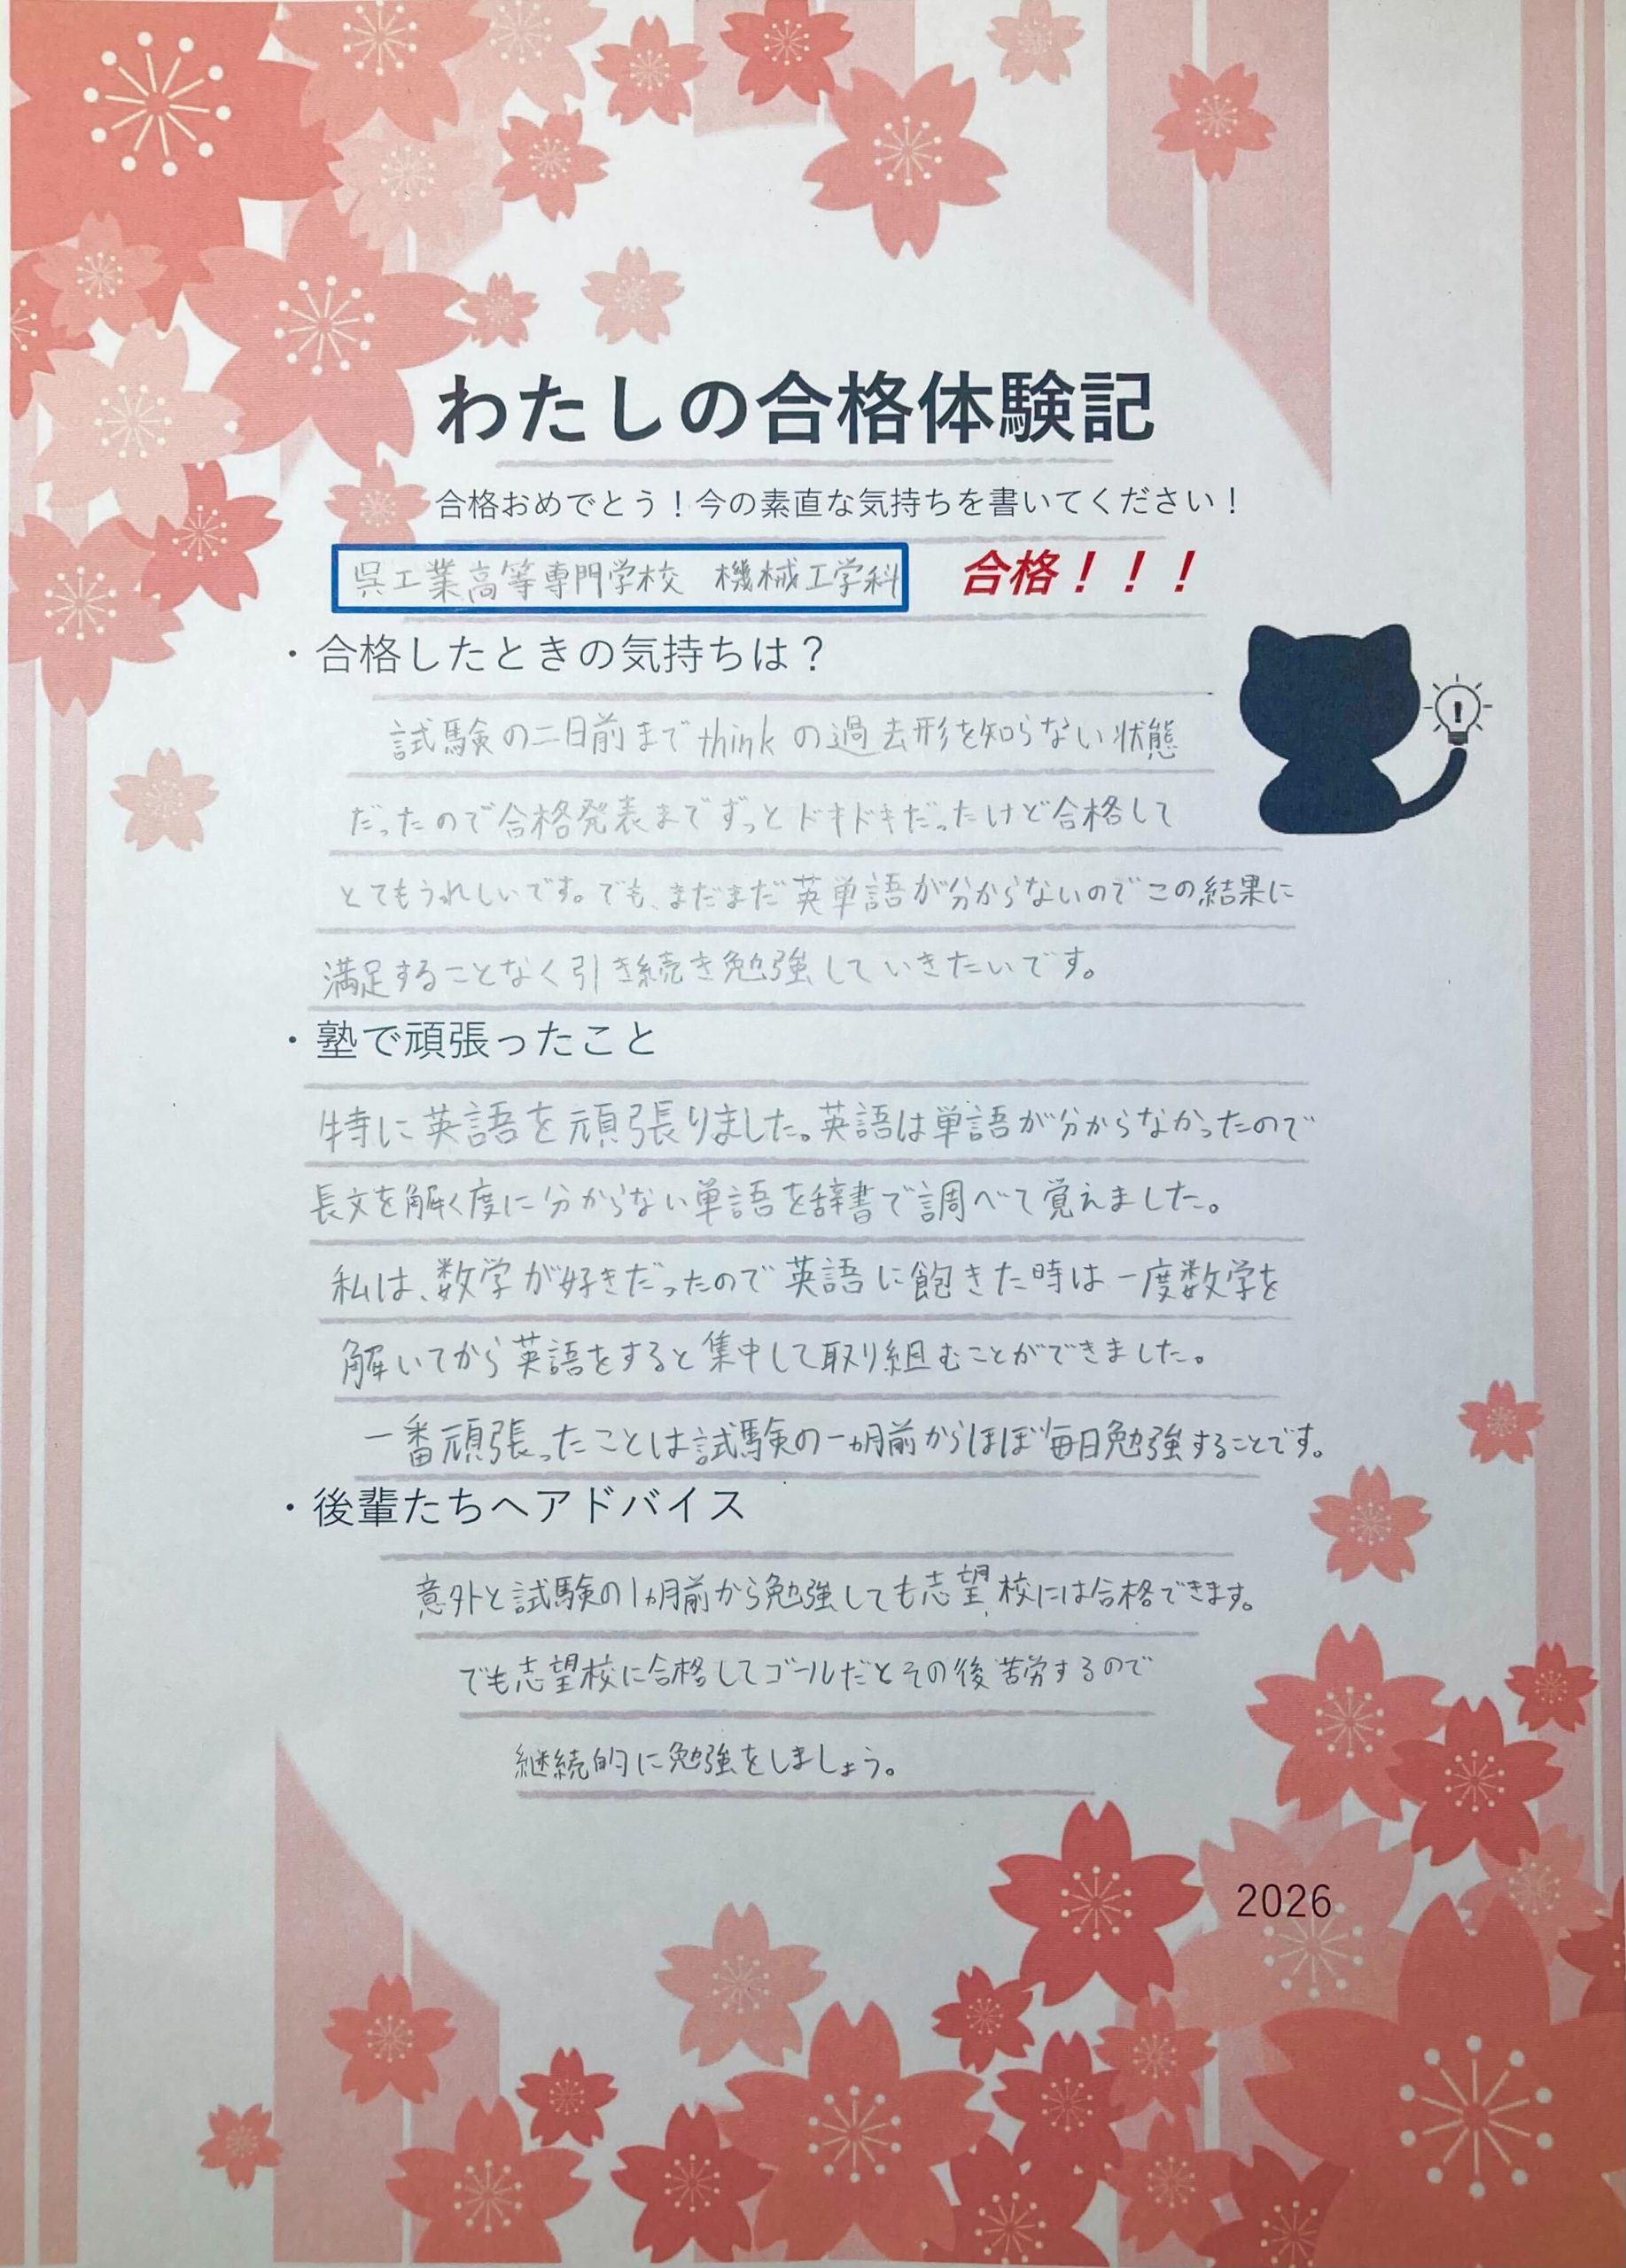 わたしの合格体験記
合格おめでとう！今の素直な気持ちを書いてください！
呉工業高等専門学校 機械工学科 合格！！！
・合格したときの気持ちは？
試験の二日前までthinkの過去形を知らない状態
だったので合格発表までずっとドキドキだったけど合格して
とてもうれしいです。でも、まだまだ英単語が分からないのでこの結果に
満足することなく引き続き勉強していきたいです。
・塾で頑張ったこと
特に英語を頑張りました。英語は単語が分からなかったので
長文を解く度に分からない単語を辞書で調べて覚えました。
私は、数学が好きだったので英語に飽きた時は一度数学を
解いてから英語をすると集中して取り組むことができました。
一番頑張ったことは試験の一ヵ月前からほぼ毎日勉強することです。
・後輩たちへアドバイス
意外と試験の1ヵ月前から勉強しても志望校には合格できます。
でも志望校に合格してゴールだとその後苦労するので
継続的に勉強をしましょう。
2026